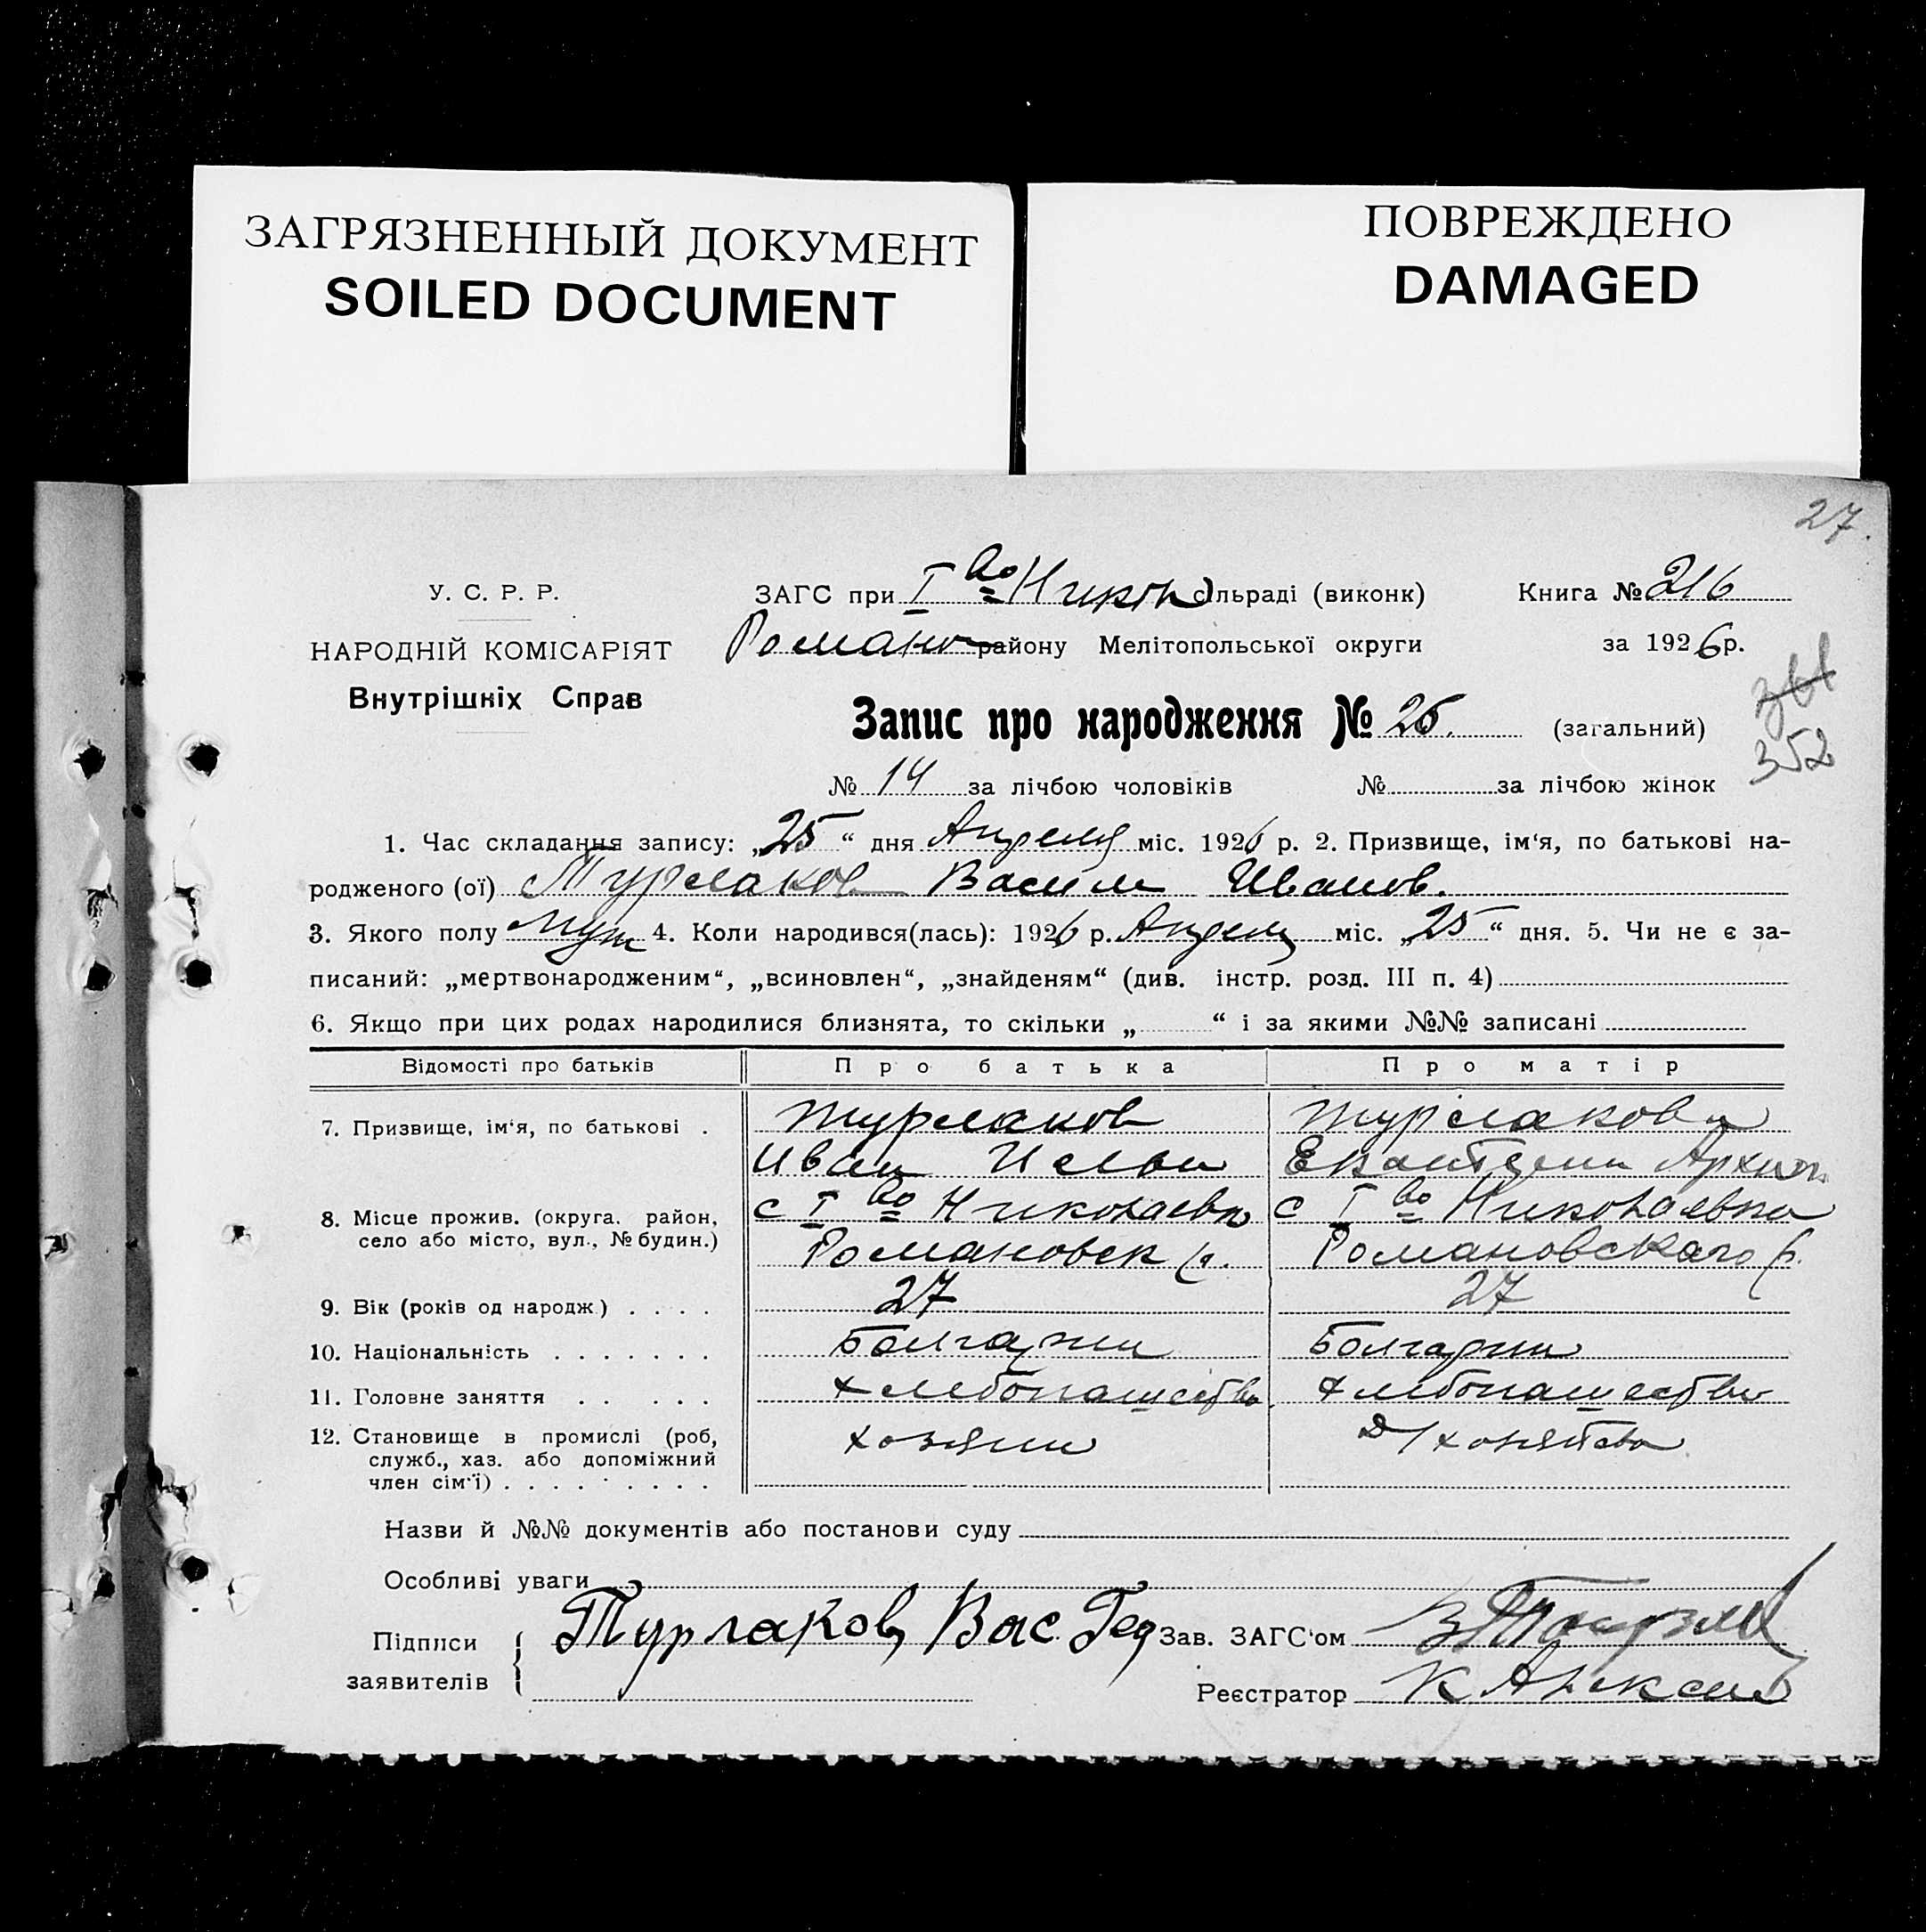 ЗАГРЯЗНЕННЫЙ ДОКУМЕНТ
SOILED DOCUMENT
ПОВРЕЖДЕНО
DAMAGED
27.
У. С. Р. Р.
НАРОДНІЙ КОМІСАРІЯТ
Внутрішніх Справ
ЗАГС при I во Никол сільраді (виконк)
Романо району Мелітопольської округи
Книга № 216
за 1926 р.
352
Запис про народження № 25. (загальний)
№ 14 за лічбою чоловіків № за лічбою жінок
1. Час складання запису: „25“ дня Апреля міс. 1926 р. 2. Призвище, ім'я, по батькові на-
родженого (ої) Турлаков Васили Иванов.
3. Якого полу муж 4. Коли народився(лась): 1926 р. Апреля міс. „25“ дня. 5. Чи не є за-
писаний: „мертвонародженим“, „всиновлен“, „знайденям“ (див. інстр. розд. III п. 4)
6. Якщо при цих родах народилися близнята, то скільки „ “ і за якими №№ записані
Відомості про батьків Про батька Про матір
7. Призвище, ім'я, по батькові . Турлаков Турлакова
Иван Ильи Архип
8. Місце прожив. (округа, район, с I во Николаевка с I во Николаевка
село або місто, вул., № будин.) Романовск р. Романовскаго р.
9. Вік (років од народж) . . . . 27 27
10. Національність . . . . . . . Болгарин Болгарин
11. Головне заняття . . . . . хлебопашество хлебопашество
12. Становище в промислі (роб, хозяин д/хозяйства
служб., хаз. або допоміжний
член сім'ї) . . . . . . . .
Назви й №№ документів або постанови суду
Особливі уваги
Підписи
заявителів
Турлаков Вас. Гед
Зав. ЗАГС'ом
Реєстратор